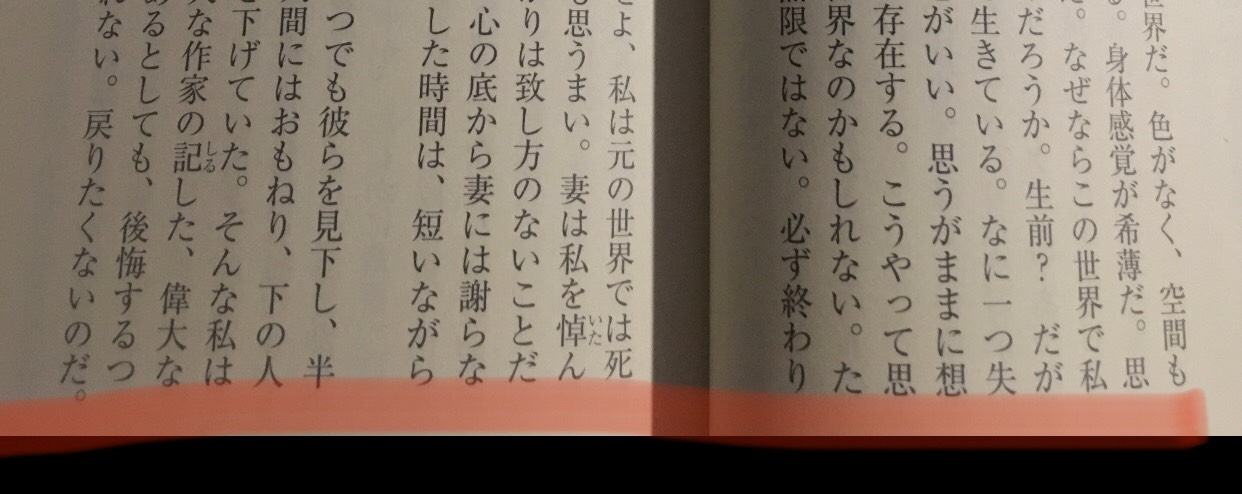 世界だ。色がなく、空間も
。身体感覚が希薄だ。思
。なぜならこの世界で私
だろうか。生前? だが
生きている。なに一つ失
がいい。思うがままに想
存在する。こうやって思
界なのかもしれない。た
無限ではない。必ず終わり
よ、私は元の世界では死
思うまい。妻は私を悼いたん
りは致し方のないことだ
心の底から妻には謝らな
した時間は、短いながら
つでも彼らを見下し、半
間にはおもねり、下の人
下げていた。そんな私は
な作家の記しるした、偉大な
あるとしても、後悔するつ
れない。戻りたくないのだ。